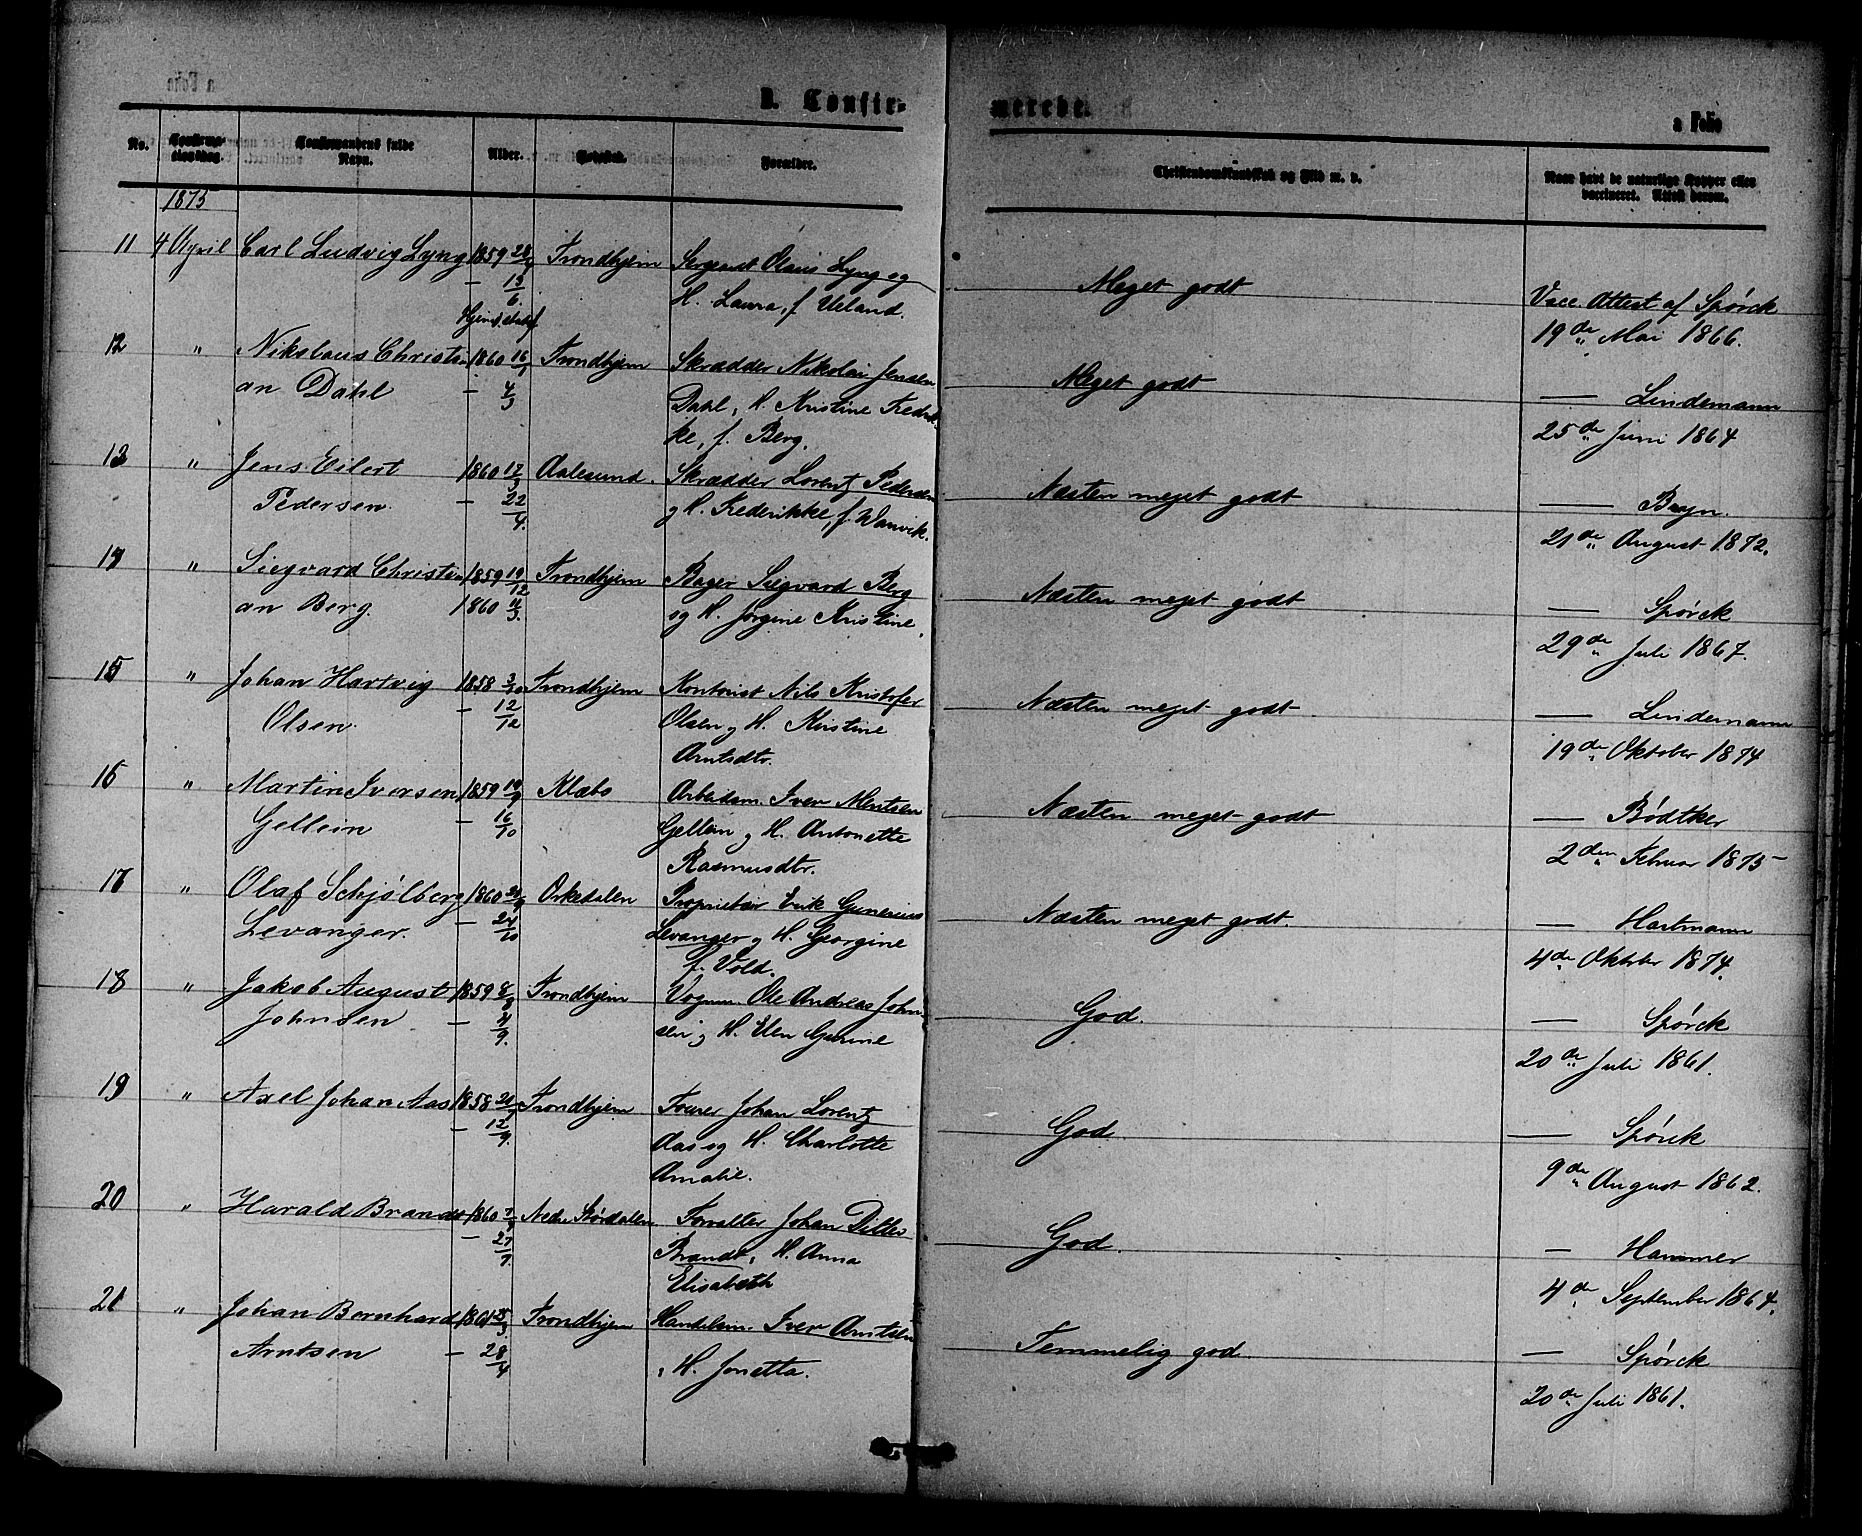 D. Confir-
merede.
a Folio
No.
Confirma-
tionsdag.
Confirmandens fulde
Navn.
Alder.
Fødested.
Forældre.
Christendomskundskab og Flid m. v.
Naar havt de naturlige Kopper eller
vaccineret. Attest derom.
1875
11 4 April Carl Ludvig Lyng 1859 Trondhjem Sergeant Olaus Lyng og
H. Laura, f. Ueland.
Meget godt
Vacc. Attest af Spörck
19de Mai 1866.
12 " Nikolaus Christi- 1860 16/1 Trondhjem Skrædder Nikolai Jensen
an Dahl - 4/3 Dahl, H. Kristine Fredrik-
ke, f. Berg.
Meget godt
— Lindemann
25de Juni 1864
13 " Jens Eilert 1860 17/3 Aalesund. Skrædder Lorentz Pedersen
Pedersen. - 22/4. og H. Frederikke, f. Wanvik.
Næsten meget godt
— Bayn.
21de August 1872.
14 " Siegvard Christi- 1859 19/12 Trondhjem Bager Siegvard Berg
an Berg. 1860 11/3. og H. Jørgine Kristine,
Næsten meget godt
— Spörck
29de Juli 1867.
15 " Johan Hartvig 1858 3/10 Trondhjem Kontorist Nils Kristofer
Olsen. - 12/12 Olsen og H. Kristine
Arntsdtr.
Næsten meget godt
— Lindemann
19de Oktober 1874
16 " Martin Iversen 1859 Klæbo Arbeidsm. Iver Mentsen
Gellein - 16/10 Gellein og H. Antonette
Rasmusdtr.
Næsten meget godt
— Bödtker
2den Februar 1875
17 " Olaf Schjölberg 1860 Orkedalen Proprietær Erik Gunerius
Levanger. - 24/10 Levanger og H. Georgine
f. Vold.
Næsten meget godt.
— Hartmann
4de Oktober 1874.
18 " Jakob August 1859 8/8 Trondhjem Vognm. Ole Andreas John-
Johnsen - 4/9. sen og H. Elen Gurine
God.
— Spörck
20de Juli 1861.
19 " Axel Johan Aas 1858 Trondhjem Fourer Johan Lorentz
- 12/9. Aas og H. Charlotte
Amalie.
God.
— Spörck
9de August 1862.
20 " Harald Brandt 1860 Nedre Størdalen Forvalter Johan Ditlev
- 27/9. Brandt, H. Anna
Elisabeth
God.
— Hammer
4de September 1864.
21 " Johan Bernhard Trondhjem Handelsm. Iver Arntsen
Arntsen - 28/4 , H. Jonetta.
Temmelig god
— Spörck
20de Juli 1861.